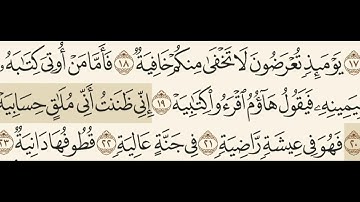 ١٧ يَوْمَئِذٍ تُعْرَضُونَ لَا تَخْفَىٰ مِنكُمْ خَافِيَةٌ ١٨ فَأَمَّا مَنْ أُوتِىَ كِتَـٰبَهُۥ
بِيَمِينِهِۦ فَيَقُولُ هَآؤُمُ ٱقْرَءُوا۟ كِتَـٰبِيَهْ ١٩ إِنِّى ظَنَنتُ أَنِّى مُلَـٰقٍ حِسَابِيَهْ
٢٠ فَهُوَ فِى عِيشَةٍ رَّاضِيَةٍ ٢١ فِى جَنَّةٍ عَالِيَةٍ ٢٢ قُطُوفُهَا دَانِيَةٌ ٢٣